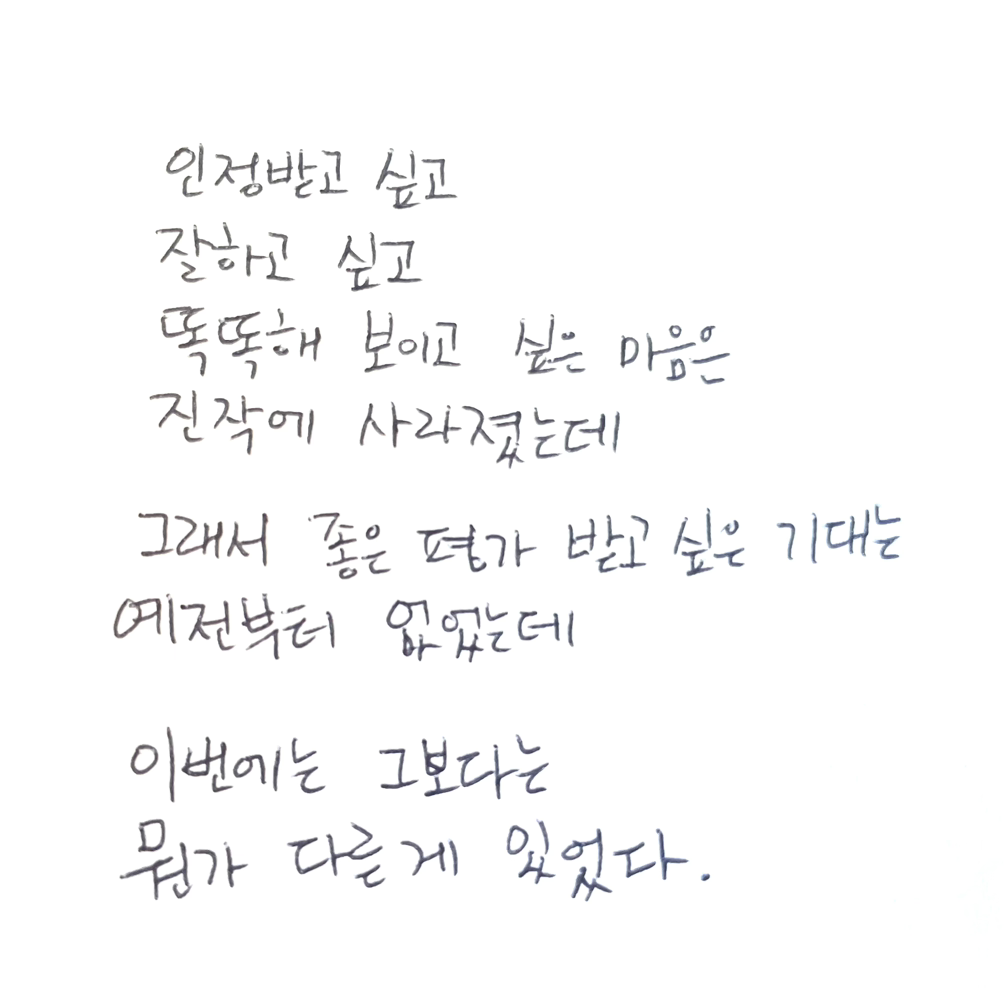 인정받고 싶고
잘하고 싶고
똑똑해 보이고 싶은 마음은
진작에 사라졌는데
그래서 좋은 평가 받고 싶은 기대는
예전부터 없었는데
이번에는 그보다는
뭔가 다른게 있었다.